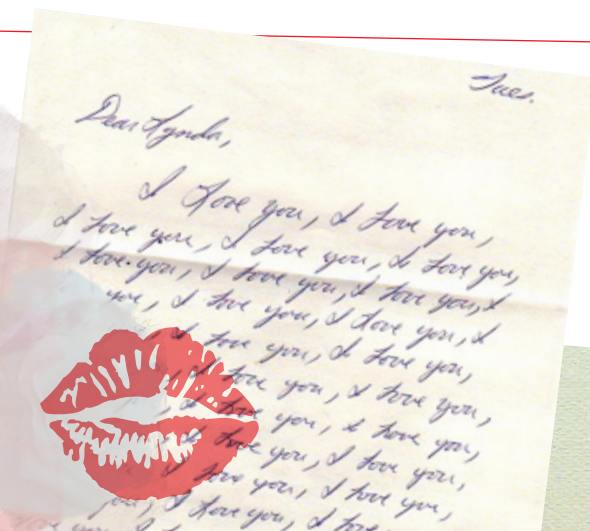 Tues.
Dear Lynda,
I love you, I love you,
I love you, I love you, I love you,
I love you, I love you, I love you, I
you, I love you, I love you, I
I love you, I love you,
I love you, I love you,
I love you, I love you,
I love you, I love you,
I love you, I love you,
you, I love you, I love